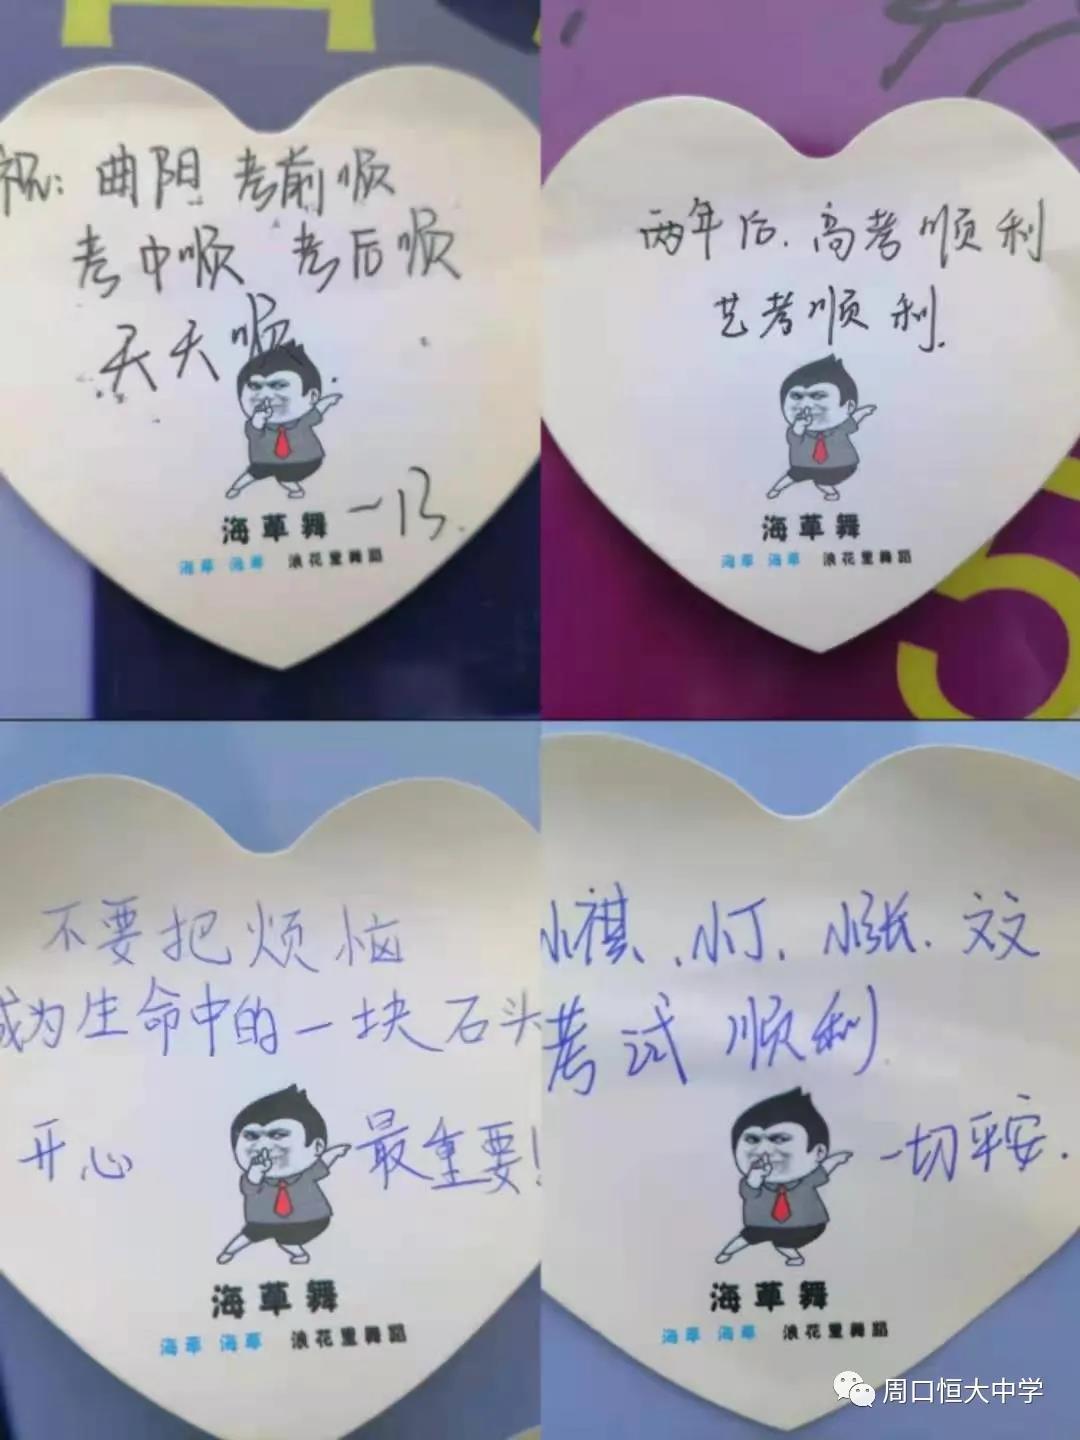 祝：曲阳 考前顺
考中顺 考后顺
天天顺
海草舞
海草 海草 浪花里舞蹈
两年后、高考顺利
艺考顺利.
海草舞
海草 海草 浪花里舞蹈
不要把烦恼
成为生命中的一块石头
开心 最重要！
海草舞
海草 海草 浪花里舞蹈
小祺、小丁、小张、文文
考试顺利
一切平安.
海草舞
海草 海草 浪花里舞蹈
周口恒大中学